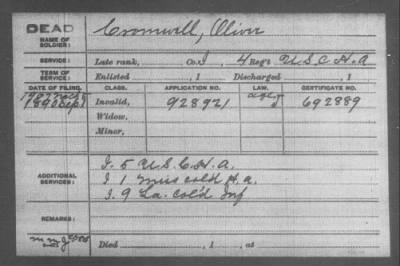 DEAD
NAME OF SOLDIER: Cromwell, Oliver
SERVICE: Late rank, Co. I, 4 Reg't U.S.C.H.A
TERM OF SERVICE: Enlisted , 1 Discharged , 1
DATE OF FILING. CLASS. APPLICATION NO. LAW. CERTIFICATE NO.
1890 Sep Invalid, 928921 692889
Widow,
Minor,
ADDITIONAL SERVICE: I. 5 U.S.C.H.A.
I 1 Miss cold H.a.
I. 9 La. Col'd Inf
REMARKS:
Died , 1 , at